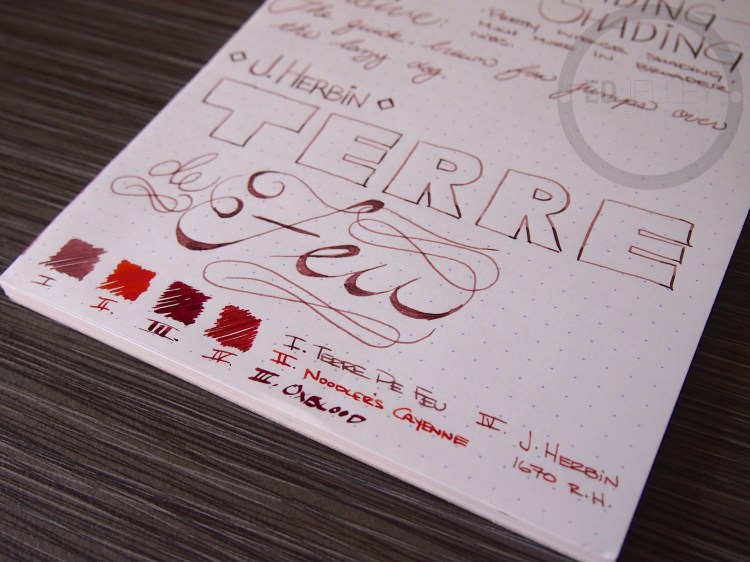 SHADING
PRETTY INTENSE SHADING,
MUCH MORE IN BROADER
NIBS.
The quick, brown fox jumps over
the lazy dog.
EDJELLEY
J. HERBIN
TERRE
de
Feu
I
II.
III.
IV.
I. TERRE DE FEU
II. NOODLER'S CAYENNE
III. OXBLOOD
IV J. HERBIN
1670 R.H.